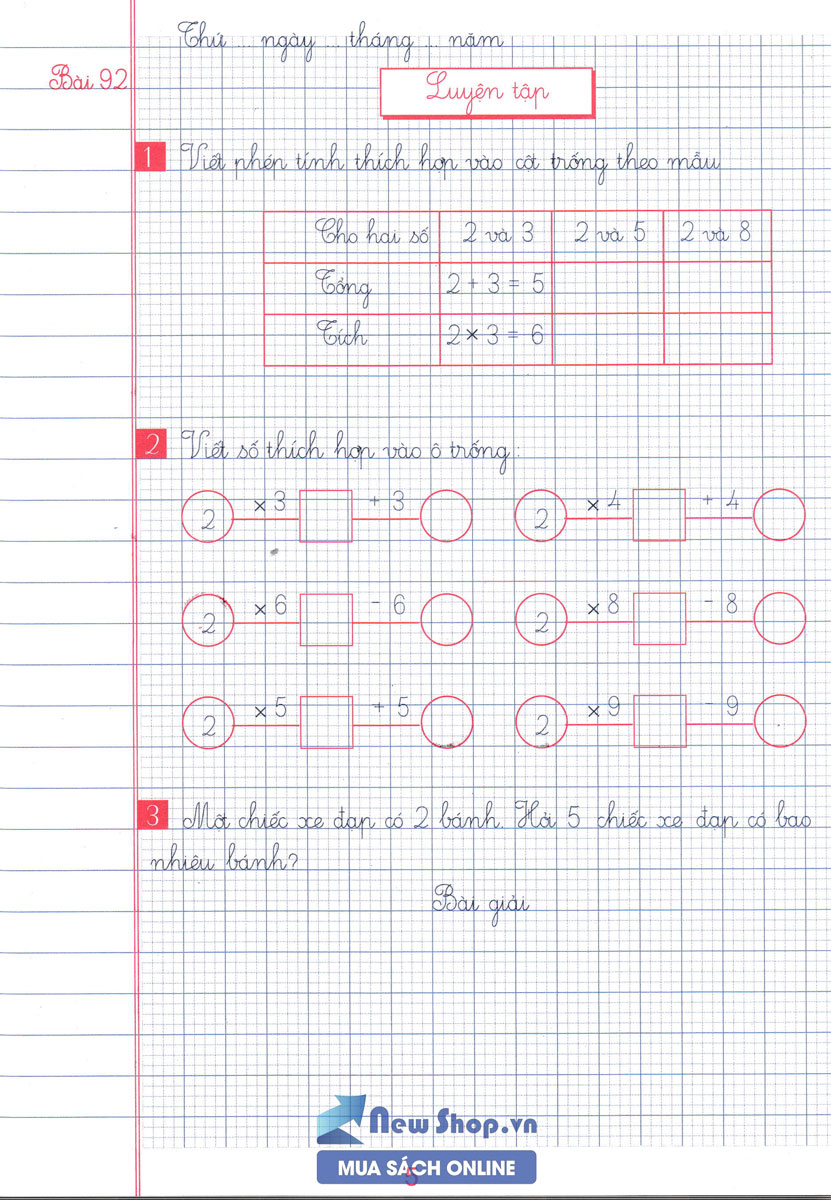 Thứ ... ngày ... tháng ... năm
Bài 92
Luyện tập
1 Viết phép tính thích hợp vào cột trống theo mẫu
Cho hai số 2 và 3 2 và 5 2 và 8
Tổng 2 + 3 = 5
Tích 2 × 3 = 6
2 Viết số thích hợp vào ô trống:
2 × 3 + 3 2 × 4 + 4
2 × 6 - 6 2 × 8 - 8
2 × 5 + 5 2 × 9 - 9
3 Một chiếc xe đạp có 2 bánh. Hỏi 5 chiếc xe đạp có bao
nhiêu bánh?
Bài giải
NewShop.vn
MUA SÁCH ONLINE
5